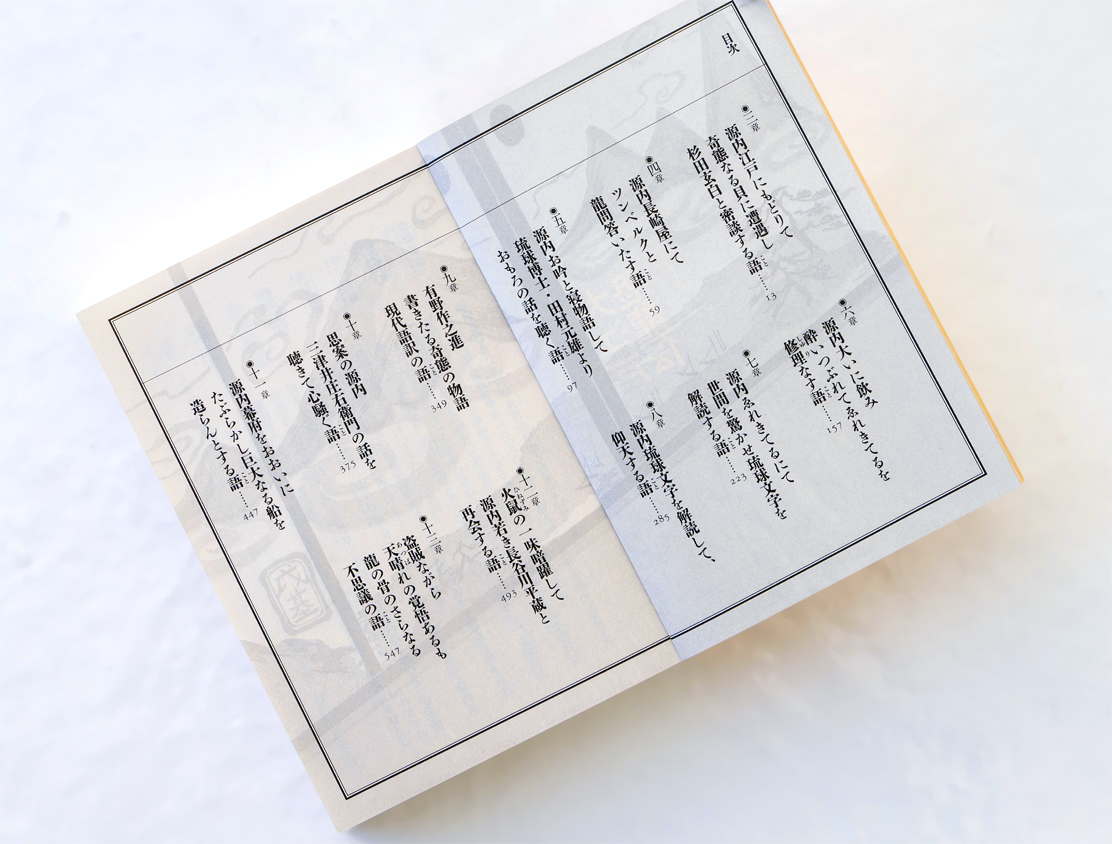 目次
●三章
源内江戸にもどりて
奇態なる貝に遭遇し
杉田玄白と密談する語……13
●四章
源内長崎屋にて
ツンベルクと
龍問答いたす語……59
●五章
源内お吟と寝物語して
琉球博士・田村元雄より
おもろの話を聴く語……97
●六章
源内大いに飲み
酔いつぶれてゑれきてるを
修理なす語……157
●七章
源内ゑれきてるにて
世間を驚かせ琉球文字を
解読する語……223
●八章
源内琉球文字を解読して、
仰天する語……285
●九章
有野作之進
書きたる奇態の物語
現代語訳の語……349
●十章
思案の源内
三津井庄右衛門の話を
聴きて心騒ぐ語……375
●十一章
源内幕府をおおいに
たぶらかし巨大なる船を
造らんとする語……447
●十二章
火鼠の一味暗躍して
源内若き長谷川平蔵と
再会する語……493
●十三章
盗賊ながら
天晴れの覚悟あるも
龍の骨のさらなる
不思議の語……547